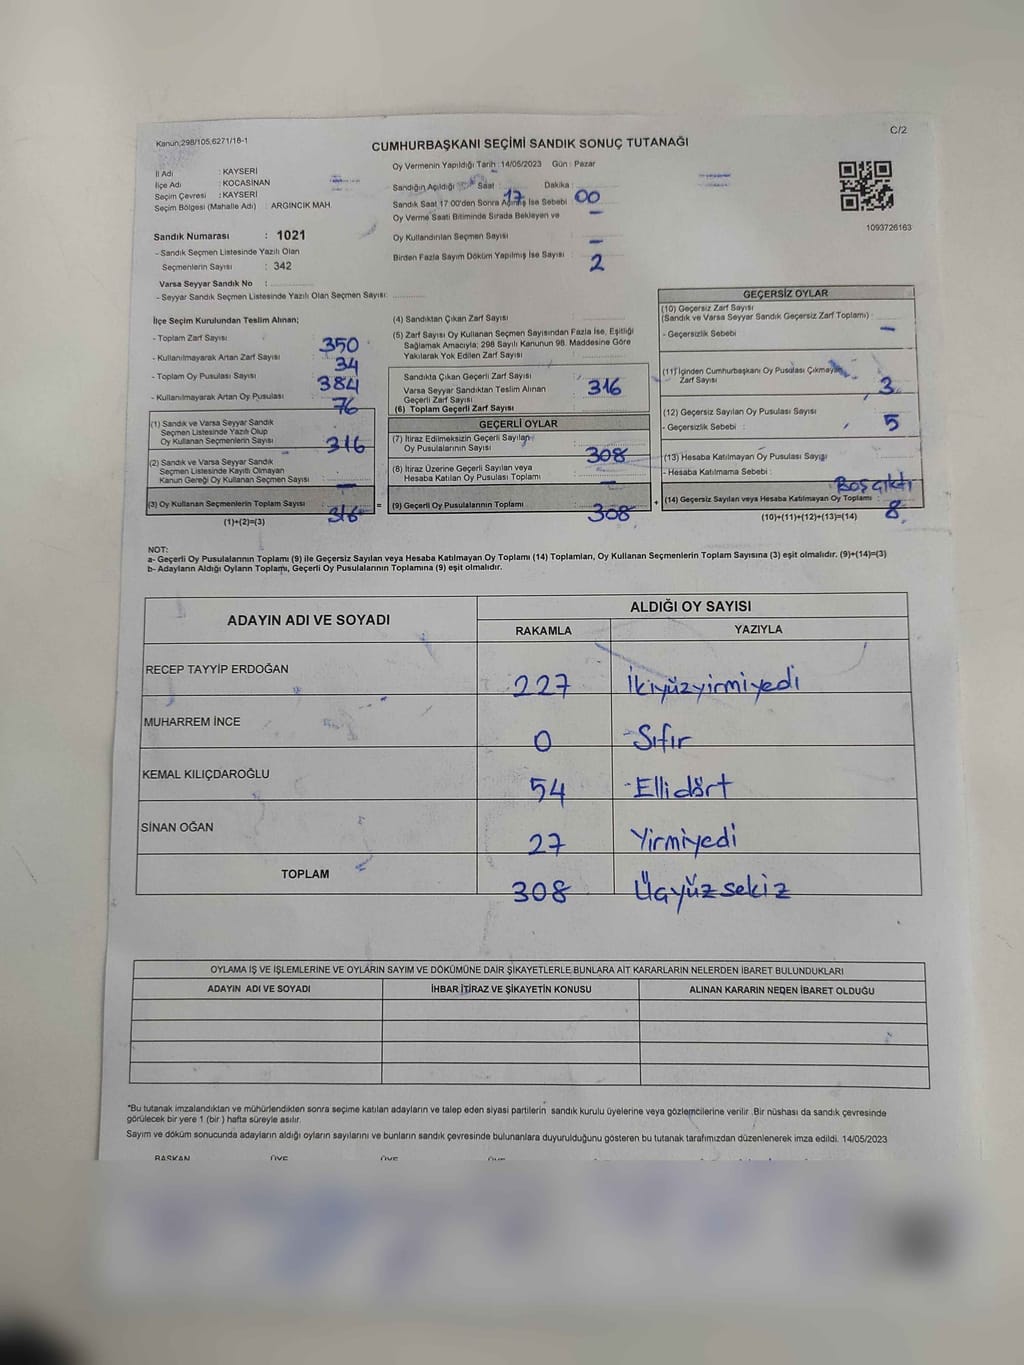 Kanun,298/105,6271/16-1
C/2
CUMHURBAŞKANI SEÇİMİ SANDIK SONUÇ TUTANAĞI
İl Adı : KAYSERİ
İlçe Adı : KOCASİNAN
Seçim Çevresi : KAYSERİ
Seçim Bölgesi (Mahalle Adı) : ARGINCIK MAH.
Oy Vermenin Yapıldığı Tarih :14/05/2023 Gün : Pazar
Sandığın Açıldığı Saat : 17 Dakika : 00
Sandık Saat 17:00'den Sonra Açılmış İse Sebebi : –
Oy Verme Saati Bitiminde Sırada Bekleyen ve
Oy Kullandırılan Seçmen Sayısı : –
Birden Fazla Sayım Döküm Yapılmış İse Sayısı : 2
1093726163
Sandık Numarası : 1021
- Sandık Seçmen Listesinde Yazılı Olan
Seçmenlerin Sayısı : 342
Varsa Seyyar Sandık No :
- Seyyar Sandık Seçmen Listesinde Yazılı Olan Seçmen Sayısı:
İlçe Seçim Kurulundan Teslim Alınan;
- Toplam Zarf Sayısı : 350
- Kullanılmayarak Artan Zarf Sayısı : 34
- Toplam Oy Pusulası Sayısı : 384
- Kullanılmayarak Artan Oy Pusulası : 76
(1) Sandık ve Varsa Seyyar Sandık
Seçmen Listesinde Yazılı Olup
Oy Kullanan Seçmenlerin Sayısı : 316
(2) Sandık ve Varsa Seyyar Sandık
Seçmen Listesinde Kayıtlı Olmayan
Kanun Gereği Oy Kullanan Seçmen Sayısı : –
(3) Oy Kullanan Seçmenlerin Toplam Sayısı : 316 =
(1)+(2)=(3)
(4) Sandıktan Çıkan Zarf Sayısı :
(5) Zarf Sayısı Oy Kullanan Seçmen Sayısından Fazla İse, Eşitliği
Sağlamak Amacıyla; 298 Sayılı Kanunun 98. Maddesine Göre
Yakılarak Yok Edilen Zarf Sayısı :
Sandıkta Çıkan Geçerli Zarf Sayısı : 316
Varsa Seyyar Sandıktan Teslim Alınan
Geçerli Zarf Sayısı :
(6) Toplam Geçerli Zarf Sayısı :
GEÇERLİ OYLAR
(7) İtiraz Edilmeksizin Geçerli Sayılan
Oy Pusulalarının Sayısı : 308
(8) İtiraz Üzerine Geçerli Sayılan veya
Hesaba Katılan Oy Pusulası Toplamı : –
(9) Geçerli Oy Pusulalarının Toplamı : 308 +
GEÇERSİZ OYLAR
(10) Geçersiz Zarf Sayısı
(Sandık ve Varsa Seyyar Sandık Geçersiz Zarf Toplamı) : –
- Geçersizlik Sebebi :
(11) İçinden Cumhurbaşkanı Oy Pusulası Çıkmayan
Zarf Sayısı : 3
(12) Geçersiz Sayılan Oy Pusulası Sayısı : 5
- Geçersizlik Sebebi :
(13) Hesaba Katılmayan Oy Pusulası Sayısı :
- Hesaba Katılmama Sebebi : Boş çıktı
(14) Geçersiz Sayılan veya Hesaba Katılmayan Oy Toplamı : 8
(10)+(11)+(12)+(13)=(14)
NOT:
a- Geçerli Oy Pusulalarının Toplamı (9) ile Geçersiz Sayılan veya Hesaba Katılmayan Oy Toplamı (14) Toplamları, Oy Kullanan Seçmenlerin Toplam Sayısına (3) eşit olmalıdır. (9)+(14)=(3)
b- Adayların Aldığı Oyların Toplamı, Geçerli Oy Pusulalarının Toplamına (9) eşit olmalıdır.
ADAYIN ADI VE SOYADI
ALDIĞI OY SAYISI
RAKAMLA YAZIYLA
RECEP TAYYİP ERDOĞAN 227 İkiyüzyirmiyedi
MUHARREM İNCE 0 Sıfır
KEMAL KILIÇDAROĞLU 54 Ellidört
SİNAN OĞAN 27 Yirmiyedi
TOPLAM 308 Üçyüzsekiz
OYLAMA İŞ VE İŞLEMLERİNE VE OYLARIN SAYIM VE DÖKÜMÜNE DAİR ŞİKAYETLERLE BUNLARA AİT KARARLARIN NELERDEN İBARET BULUNDUKLARI
ADAYIN ADI VE SOYADI İHBAR İTİRAZ VE ŞİKAYETİN KONUSU ALINAN KARARIN NEDEN İBARET OLDUĞU
*Bu tutanak imzalandıktan ve mühürlendikten sonra seçime katılan adayların ve talep eden siyasi partilerin sandık kurulu üyelerine veya gözlemcilerine verilir .Bir nüshası da sandık çevresinde
görülecek bir yere 1 (bir ) hafta süreyle asılır.
Sayım ve döküm sonucunda adayların aldığı oyların sayılarını ve bunların sandık çevresinde bulunanlara duyurulduğunu gösteren bu tutanak tarafımızdan düzenlenerek imza edildi. 14/05/2023
BAŞKAN ÜYE ÜYE